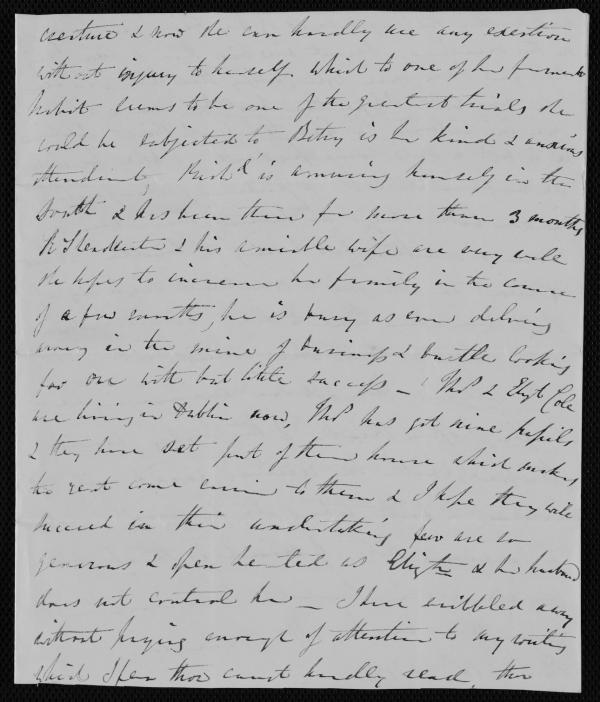 creature & now she can hardly use any exertion
without injury to herself. which to one of her former
habits seems to be one of the greatest trials she
could be subjected to Betsy is her kind & anxious
attendant, Richd. is amusing himself in the
South & has been there for more than 3 months
& his amiable wife are very well
she hopes to increase her family in the course
of a few months, he is busy as ever delving
away in the mine of business & bustle looking
for one with but little success — Thos & Elizt Cole
are living in Dublin now, Thos has got nine pupils
& they have set part of their house which makes
the rent come easier to them & I hope they will
succeed in their undertaking few are so
generous & open hearted as Elizth & her husband
does not control her — I have scribbled away
without paying enough of attention to my writing
which I fear thou canst hardly read, the